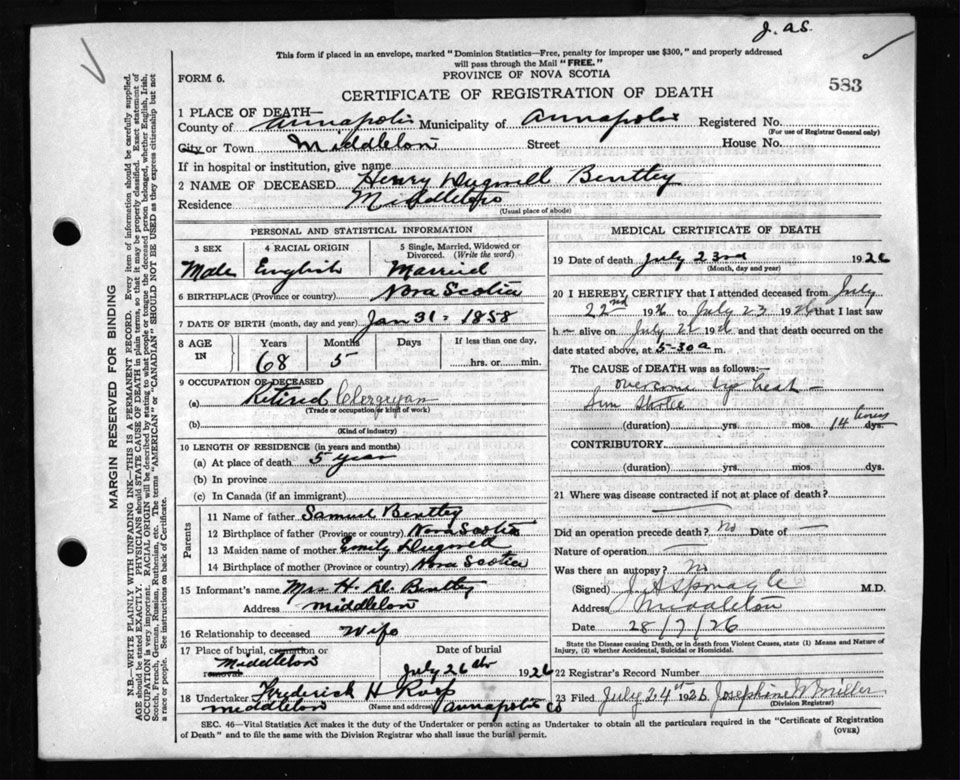 J. A.S.
This form if placed in an envelope, marked "Dominion Statistics—Free, penalty for improper use $300," and properly addressed
will pass through the Mail "FREE."
FORM 6.
PROVINCE OF NOVA SCOTIA
583
CERTIFICATE OF REGISTRATION OF DEATH
1 PLACE OF DEATH—
County of Annapolis Municipality of Annapolis Registered No.
(For use of Registrar General only)
City or Town Middleton Street House No.
If in hospital or institution, give name
2 NAME OF DECEASED Henry Bentley
Residence Middleton
(Usual place of abode)
PERSONAL AND STATISTICAL INFORMATION
3 SEX 4 RACIAL ORIGIN 5 Single, Married, Widowed or Divorced. (Write the word)
Male English Married
6 BIRTHPLACE (Province or country) Nova Scotia
7 DATE OF BIRTH (month, day and year) Jan 31 - 1858
8 AGE IN Years Months Days If less than one day,
68 5 hrs. or min.
9 OCCUPATION OF DECEASED
(a) Retired Clergyman
(Trade or occupation or kind of work)
(b)
(Kind of industry)
10 LENGTH OF RESIDENCE (in years and months)
(a) At place of death 5 year
(b) In province
(c) In Canada (if an immigrant)
Parents
11 Name of father Samuel Bentley
12 Birthplace of father (Province or country) Nova Scotia
13 Maiden name of mother Emily
14 Birthplace of mother (Province or country) Nova Scotia
15 Informant's name Mrs H. Bentley
Address Middleton
16 Relationship to deceased Wife
17 Place of burial, cremation or removal Date of burial
Middleton July 26th 1926
18 Undertaker Frederick H Ross
Middleton (Name and address) Annapolis Co
MEDICAL CERTIFICATE OF DEATH
19 Date of death July 23rd 1926
(Month, day and year)
20 I HEREBY CERTIFY that I attended deceased from July
22nd 1926 to July 23 1926 that I last saw
h alive on July 22 1926 and that death occurred on
date stated above, at 5-30 a m.
The CAUSE OF DEATH was as follows:—
overcome by heat —
Sun Stroke
(duration) yrs. mos. 14 hours dys.
CONTRIBUTORY
(duration) yrs. mos. dys.
21 Where was disease contracted if not at place of death?
Did an operation precede death? No Date of —
Nature of operation
Was there an autopsy? No
(Signed) J A Sponagle M.D.
Address Middleton
Date 28/7/26
State the Disease causing Death, or in death from Violent Causes, state (1) Means and Nature of
Injury, (2) whether Accidental, Suicidal or Homicidal.
22 Registrar's Record Number
23 Filed July 24th 1926 Josephine W Miller
(Division Registrar)
SEC. 46—Vital Statistics Act makes it the duty of the Undertaker or person acting as Undertaker to obtain all the particulars required in the "Certificate of Registration
of Death" and to file the same with the Division Registrar who shall issue the burial permit.
(OVER)
MARGIN RESERVED FOR BINDING
N.B.—WRITE PLAINLY WITH UNFADING INK—THIS IS A PERMANENT RECORD. Every item of information should be carefully supplied.
AGE should be stated EXACTLY. PHYSICIANS should STATE CAUSE OF DEATH in plain terms, so that it may be properly classified. Exact statement of
OCCUPATION is very important. RACIAL ORIGIN will be described by stating to what people or tongue the deceased person belonged, whether English, Irish,
Scotch, French, German, Russian, Ruthenian, etc. The terms "AMERICAN" or "CANADIAN" SHOULD NOT BE USED as they express citizenship but not
a race or people. See instructions on back of Certificate.